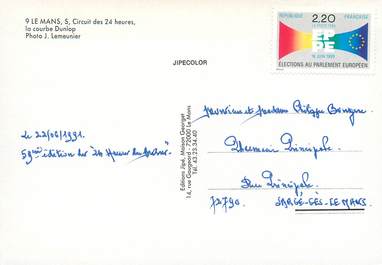 9 LE MANS, 5, Circuit des 24 heures,
la courbe Dunlop
Photo J. Lemeunier
JIPECOLOR
RÉPUBLIQUE FRANÇAISE
2,20
LA POSTE 1989
PE
18 JUIN 1989
ÉLECTIONS AU PARLEMENT EUROPÉEN
Editions Jipé, Maison Georget
14, rue Gougeard - 72000 Le Mans
Tél. 43.23.34.40
le 22/06/1991.
59ème édition des "24 Heures du Mans".
Monsieur et Madame Philippe
Pharmacie Principale
Rue Principale
72190 SARGÉ-LÈS-LE MANS